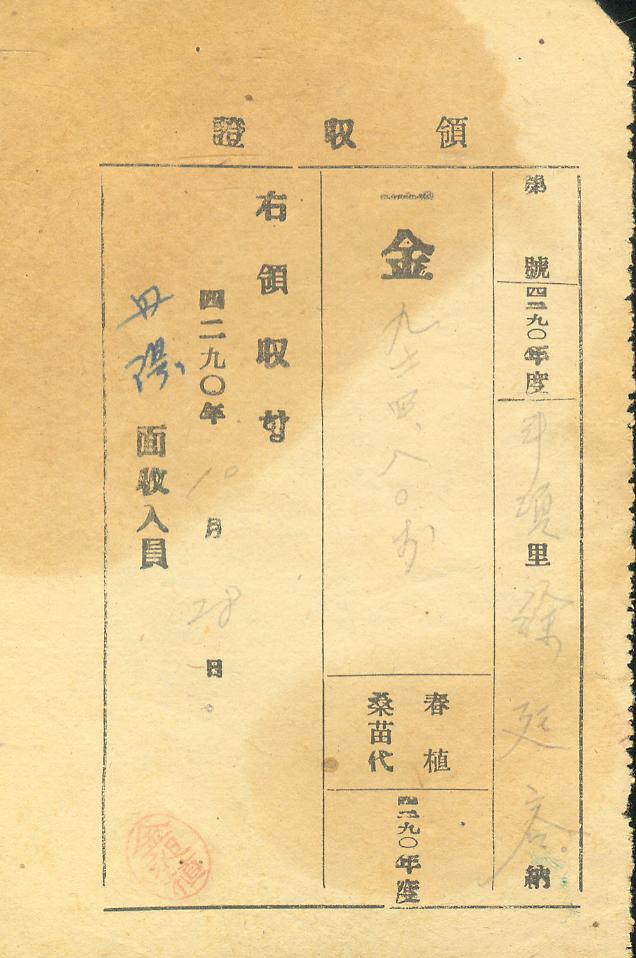 領收證
第 號
四二九〇年度
里 徐廷 納
一金 九六四、八〇
春植
桑苗代
四二九〇年度
右領收함
四二九〇年 10月 28日
丹陽 面收入員